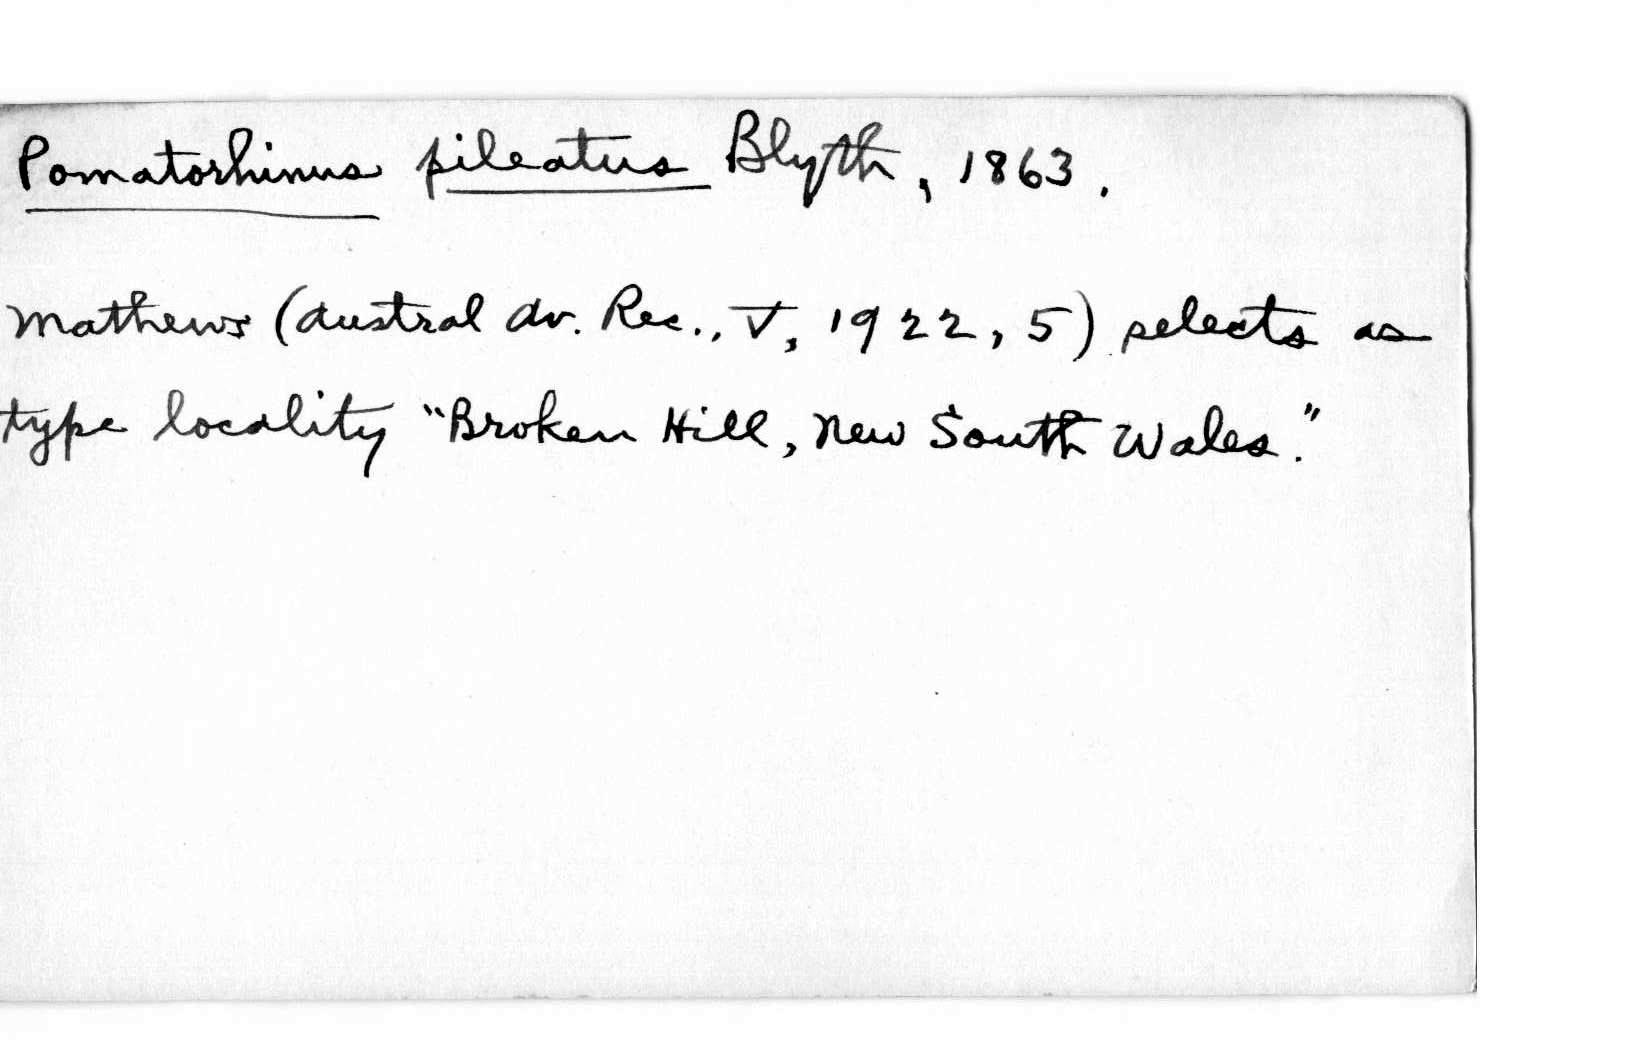 Pomatorhinus pileatus Blyth, 1863.
Mathews (Austral Av. Rec., V, 1922, 5) selects as
type locality "Broken Hill, New South Wales."